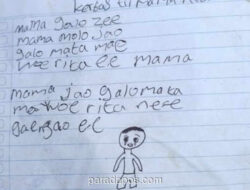 kertas
mama galo zee
mama molo jao
galo mata mae
nee rita ee mama
mama jao galo mata
mae woe rita nee
gao ee
paradapos.com